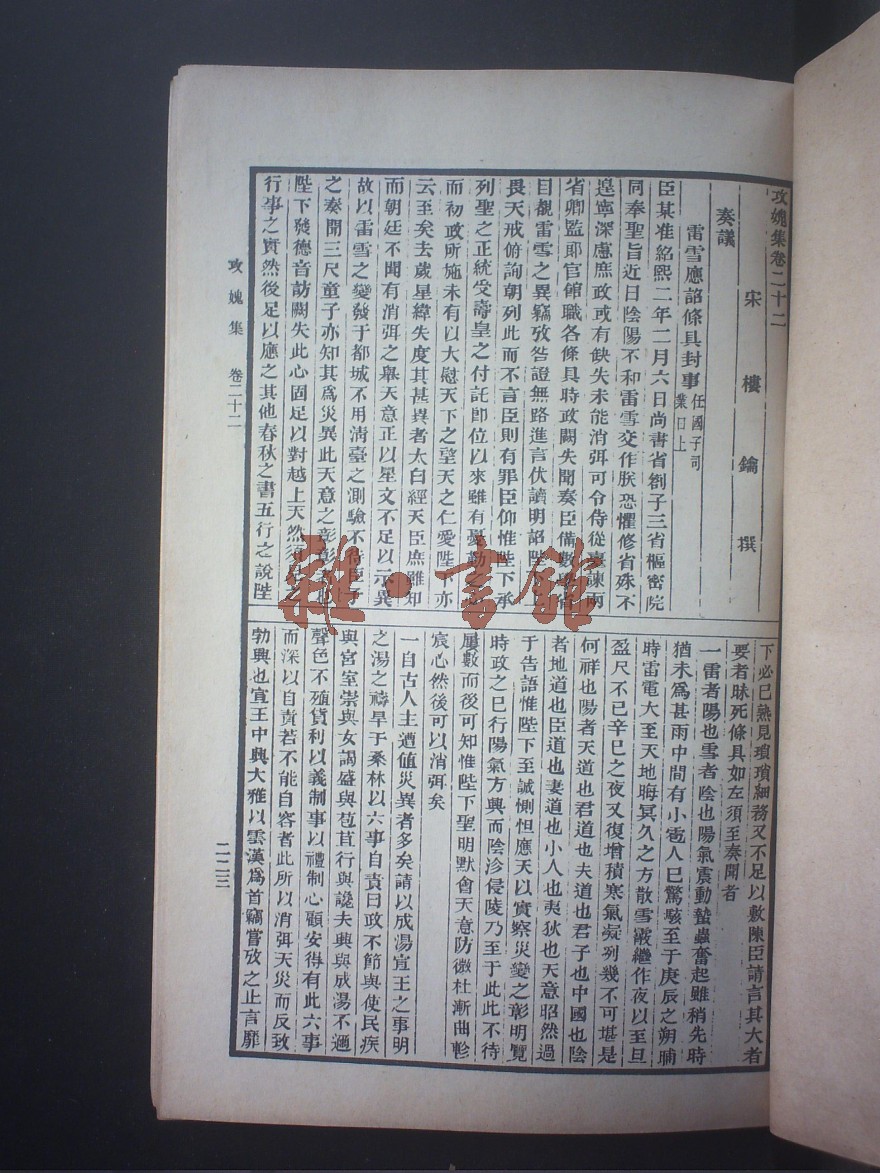 攻媿集卷二十二
宋樓鑰撰
奏議
雷雪應詔條具封事任國子司業日上
臣某准紹熙二年二月六日尚書省劄子三省樞密院
同奉聖旨近日陰陽不和雷雪交作朕恐懼修省殊不
遑寧深慮庶政或有缺失未能消弭可令侍從臺諫兩
省卿監郎官館職各條具時政闕失聞奏臣備數
目覩雷雪之異竊攷咎證無路進言伏讀明詔陛下上
畏天戒俯詢朝列此而不言臣則有罪臣仰惟陛下承
列聖之正統受壽皇之付託卽位以來雖有憂勤之
而初政所施未有以大慰天下之望天之仁愛陛下亦
云至矣去歲星緯失度其甚異者太白經天臣庶雖知
而朝廷不聞有消弭之舉天意正以星文不足以示異
故以雷雪之變發于都城不用淸臺之測驗不待臣子
之奏聞三尺童子亦知其爲災異此天意之彰彰者也
陛下發德音訪闕失此心固足以對越上天然須
行事之實然後足以應之其他春秋之書五行之說陛
下必已熟見瑣瑣細務又不足以敷陳臣請言其大者
要者昧死條具如左須至奏聞者
一雷者陽也雪者陰也陽氣震動蟄蟲奮起雖稍先時
猶未爲甚雨中間有小雹人已驚駭至于庚辰之朔晡
時雷電大至天地晦冥久之方散雪霰繼作夜以至旦
盈尺不已辛巳之夜又復增積寒氣凝列幾不可堪是
何祥也陽者天道也君道也夫道也君子也中國也陰
者地道也臣道也妻道也小人也夷狄也天意昭然過
于告語惟陛下至誠惻怛應天以實察災變之彰明覽
時政之已行陽氣方興而陰沴侵陵乃至于此此不待
屢數而後可知惟陛下聖明默會天意防微杜漸曲軫
宸心然後可以消弭矣
一自古人主遭値災異者多矣請以成湯宣王之事明
之湯之禱旱于桑林以六事自責曰政不節與使民疾
與宮室崇與女謁盛與苞苴行與讒夫興與成湯不邇
聲色不殖貨利以義制事以禮制心顧安得有此六事
而深以自責若不能自容者此所以消弭天災而反致
勃興也宣王中興大雅以雲漢爲首竊嘗攷之止言靡
攻媿集 卷二十二
二二三
雜·書館